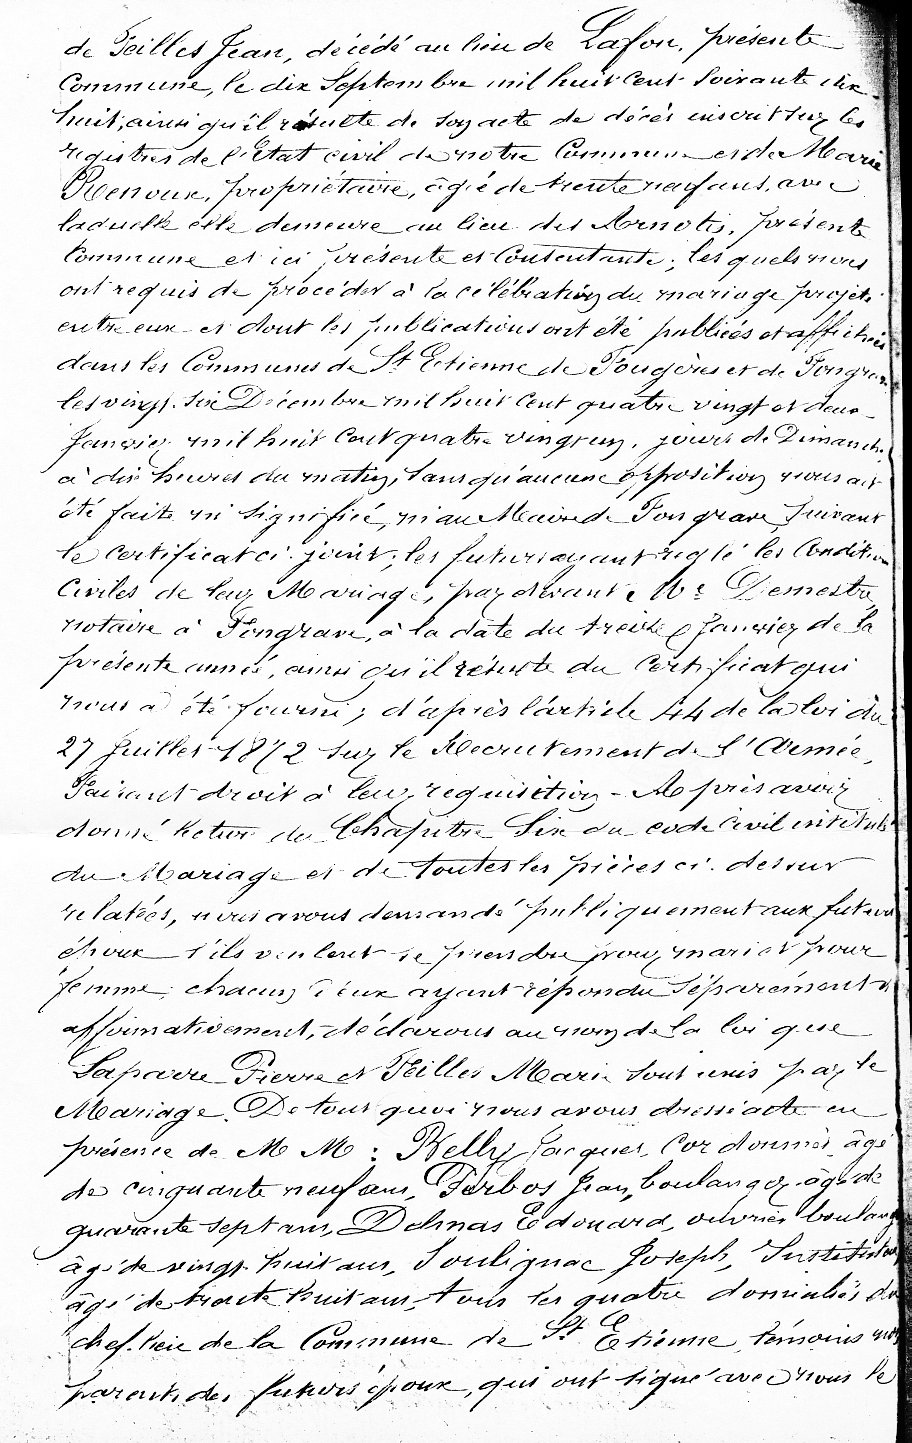 de Feilles Jean, décédé au lieu de Lafon, présente
Commune, le dix Septembre mil huit cent soixante dix-
huit, ainsi qu'il résulte de son acte de décès inscrit sur les
registres de l'Etat civil de notre Commune et de Marie
Renoux, propriétaire, âgée de trente neuf ans, avec
laquelle elle demeure au lieu des Arnotis, présente
Commune et ici présente et Consentante; les quels nous
ont requis de procéder à la célébration du mariage projeté
entre eux et dont les publications ont été publiées et affichées
dans les Communes de St Etienne de Fougères et de Fongrave
les vingt-six Décembre mil huit cent quatre vingt et deux
Janvier mil huit cent quatre vingt un, jours de Dimanche,
à dix heures du matin, sans qu'aucune opposition nous ait
été faite ni signifiée, ni au Maire de Fongrave, suivant
le certificat ci-joint; les futurs ayant réglé les Conditions
Civiles de leur Mariage, par devant Me Demestre,
notaire à Fongrave, à la date du treize Janvier de la
présente année, ainsi qu'il résulte du Certificat qui
nous a été fourni; d'après l'article 44 de la loi du
27 Juillet 1872 sur le Recrutement de l'Armée,
Faisant droit à leur requisition - Après avoir
donné lecture du Chapitre Six du code civil intitulé
du Mariage et de toutes les pièces ci-dessus
relatées, nous avons demandé publiquement aux futurs
époux s'ils veulent se prendre pour mari et pour
femme, chacun d'eux ayant répondu séparément et
affirmativement, déclarons au nom de la loi que
Laparre Pierre et Feilles Marie sont unis par le
Mariage. De tout quoi nous avons dressé acte en
présence de MM: Relly Jacques, Cordonnier, âgé
de cinquante neuf ans, Ferbos Jean, boulanger, âgé de
quarante sept ans, Delmas Edouard, ouvrier boulanger
âgé de vingt huit ans, Soulignac Joseph, Instituteur,
âgé de trente huit ans, tous les quatre domiciliés du
chef-lieu de la Commune de St Etienne, témoins non
parents des futurs époux, qui ont signé avec nous le